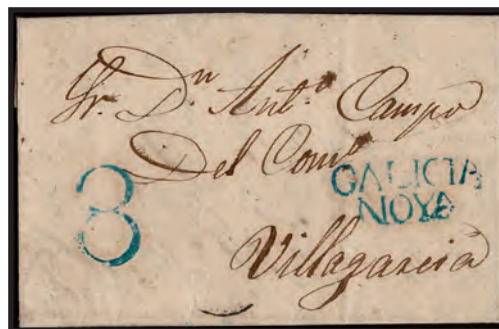 Sr. Dn. Anto. Campo
Del Como.
8
GALICIA
NOYA
Villagarcia